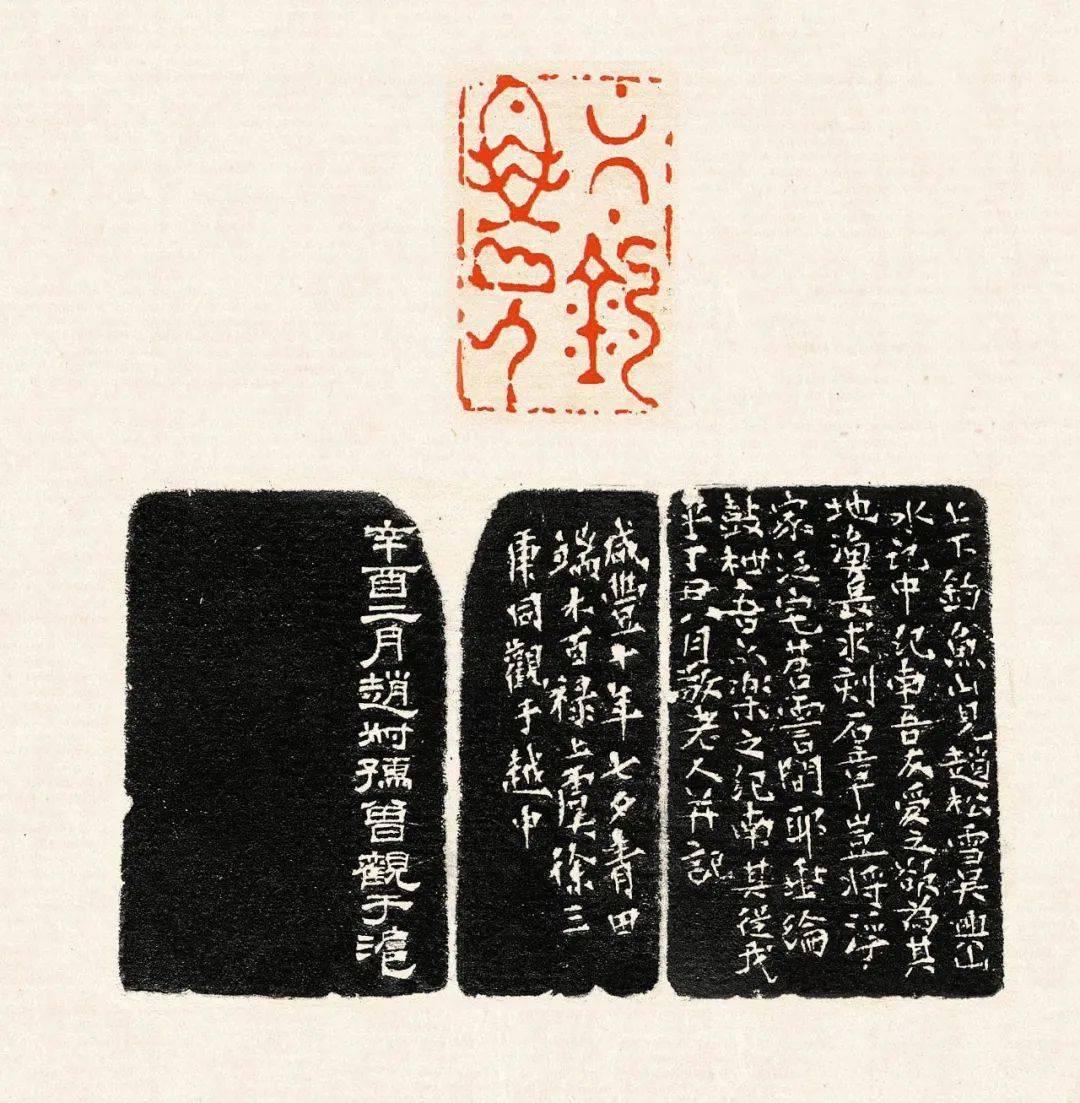 上下釣
魚山人
上下釣魚山見趙松雪吳興山
水記中紀南吾友愛之欲為其
地漁長求刻石章豈將浮
家泛宅苕霅間耶垂綸
鼓枻吾亦樂之紀南其從我
乎丁丑八月敬老人并記
咸豐十年七夕青田
端木百祿上虞徐三
庚同觀于越中
辛酉二月趙尗孺曾觀于滬